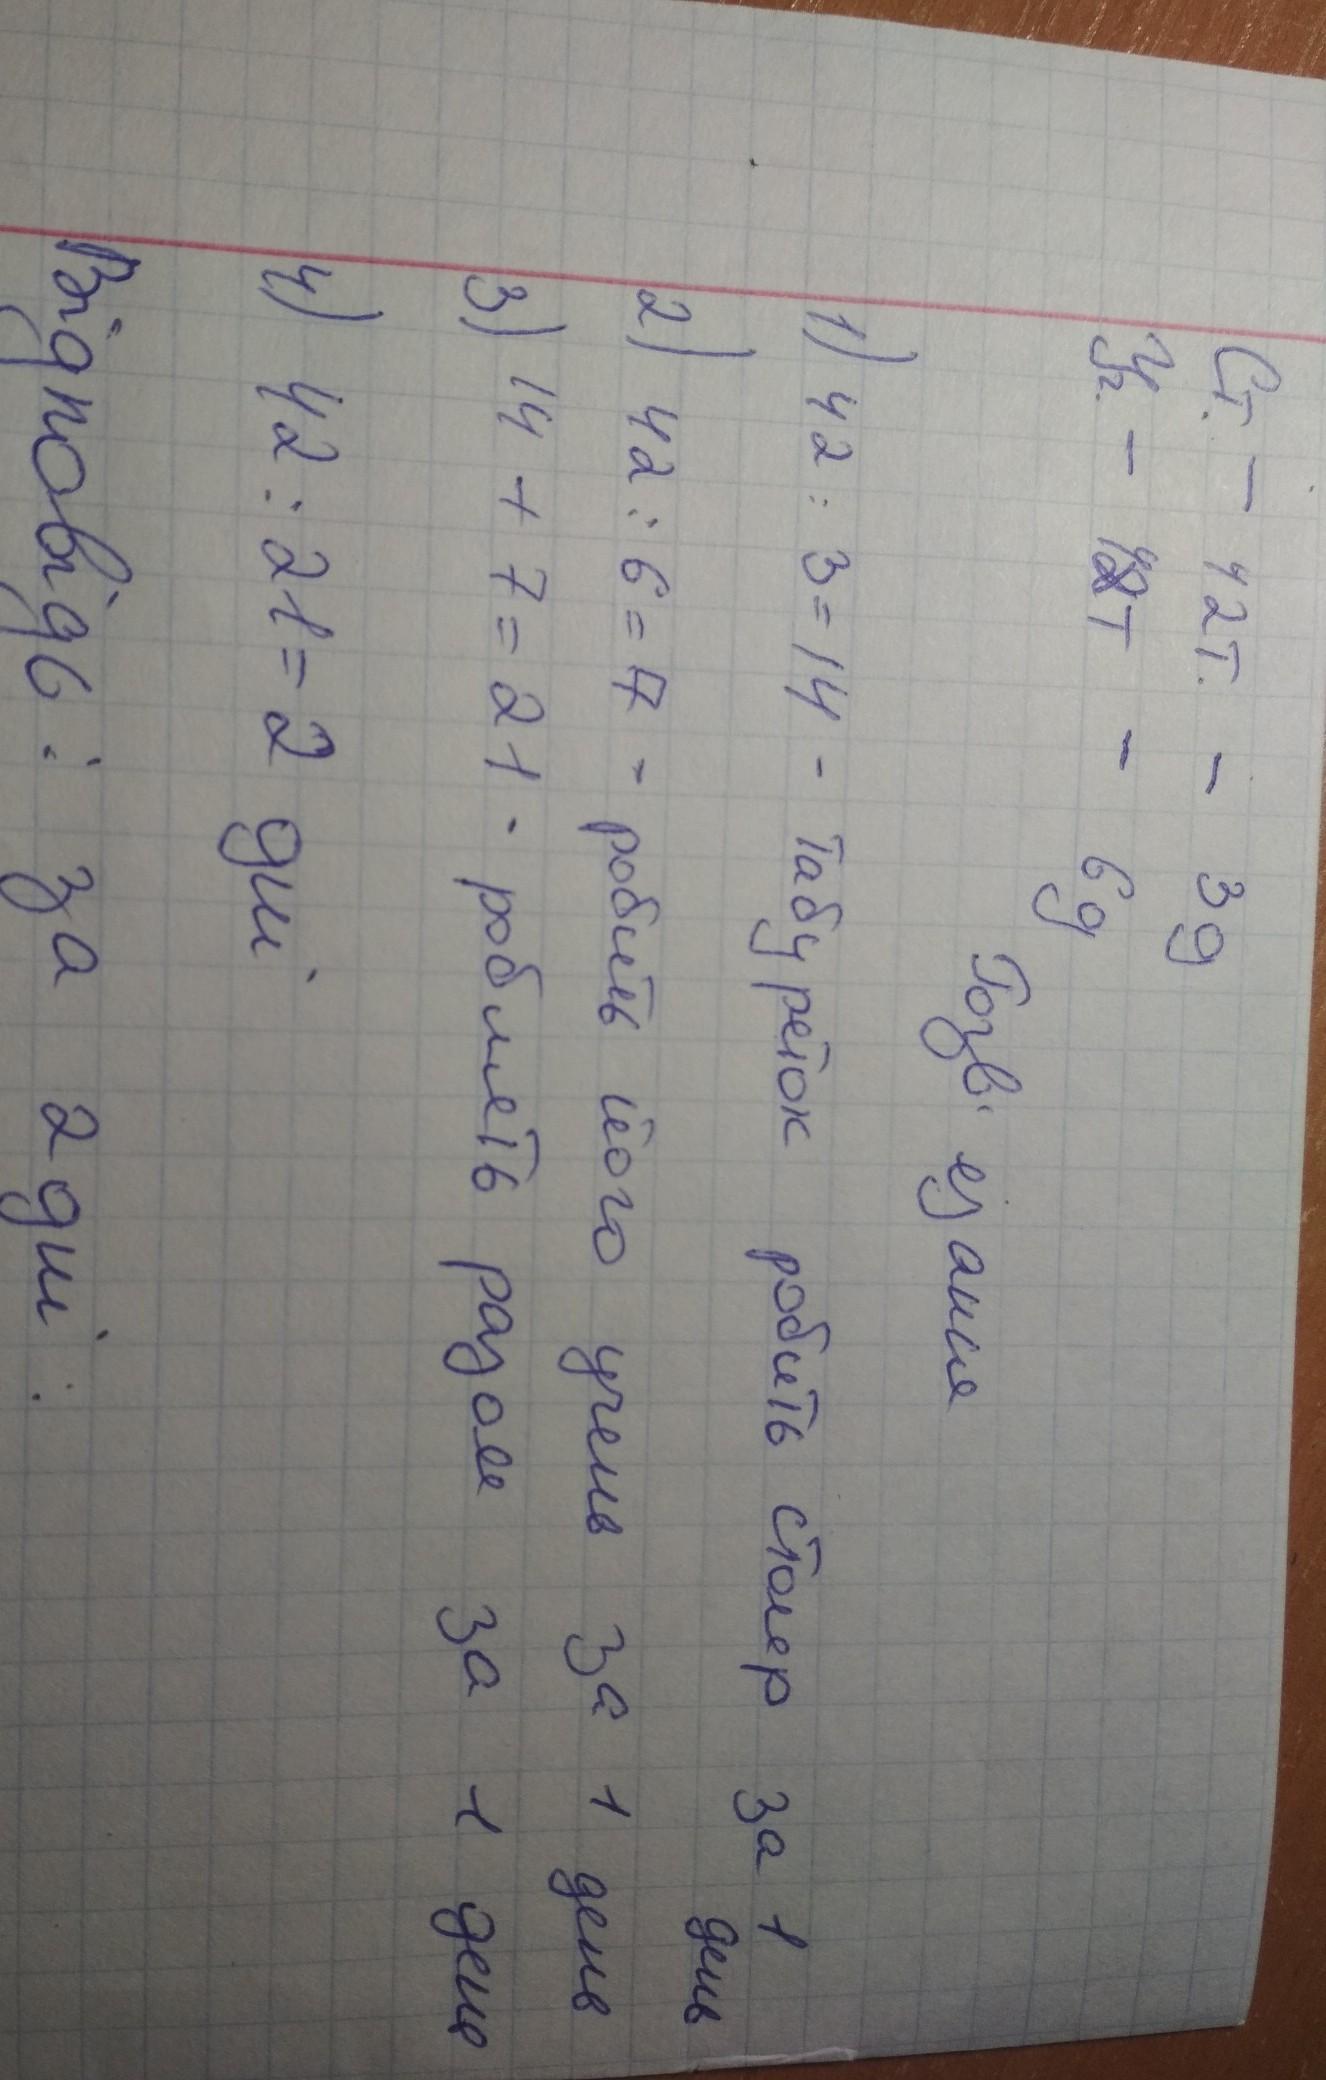 Ст. - 42т. - 3д
Уч. - 42т - 6д
Розв'язання
1) 42 : 3 = 14 - табуреток робить столяр за 1 день
2) 42 : 6 = 7 - робить його учень за 1 день
3) 14 + 7 = 21 - роблять разом за 1 день
4) 42 : 21 = 2 дні
Відповідь: за 2 дні.